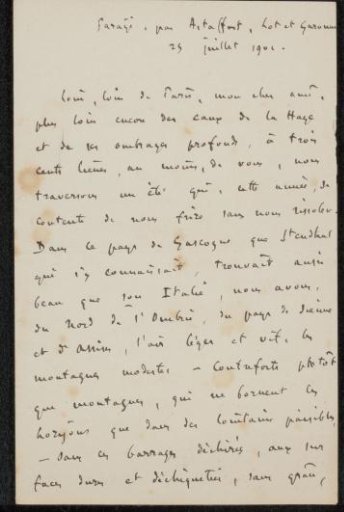 par Astaffort, Lot et Garonne
25 juillet 1901.
Loin, loin de Paris, mon cher ami,
plus loin encore des eaux de la Haye
et de ses ombrages profonds, à trois
cents lieues, au moins, de vous, nous
traversons un été qui, cette année, se
contente de nous frire sans nous rissoler.
Dans ce pays de Gascogne que Stendhal
qui s'y connaissait, trouvait aussi
beau que son Italie, nous avons,
du Nord de l'Ombrie, du pays de Sienne
et d'Assise, l'air léger et vif, les
montagnes modestes — contreforts plutôt
que montagnes, qui ne bornent les
horizons que dans des lointains paisibles
— sans ces barrages déchirés, aux sur
faces dures et déchiquetées, sans grâce,